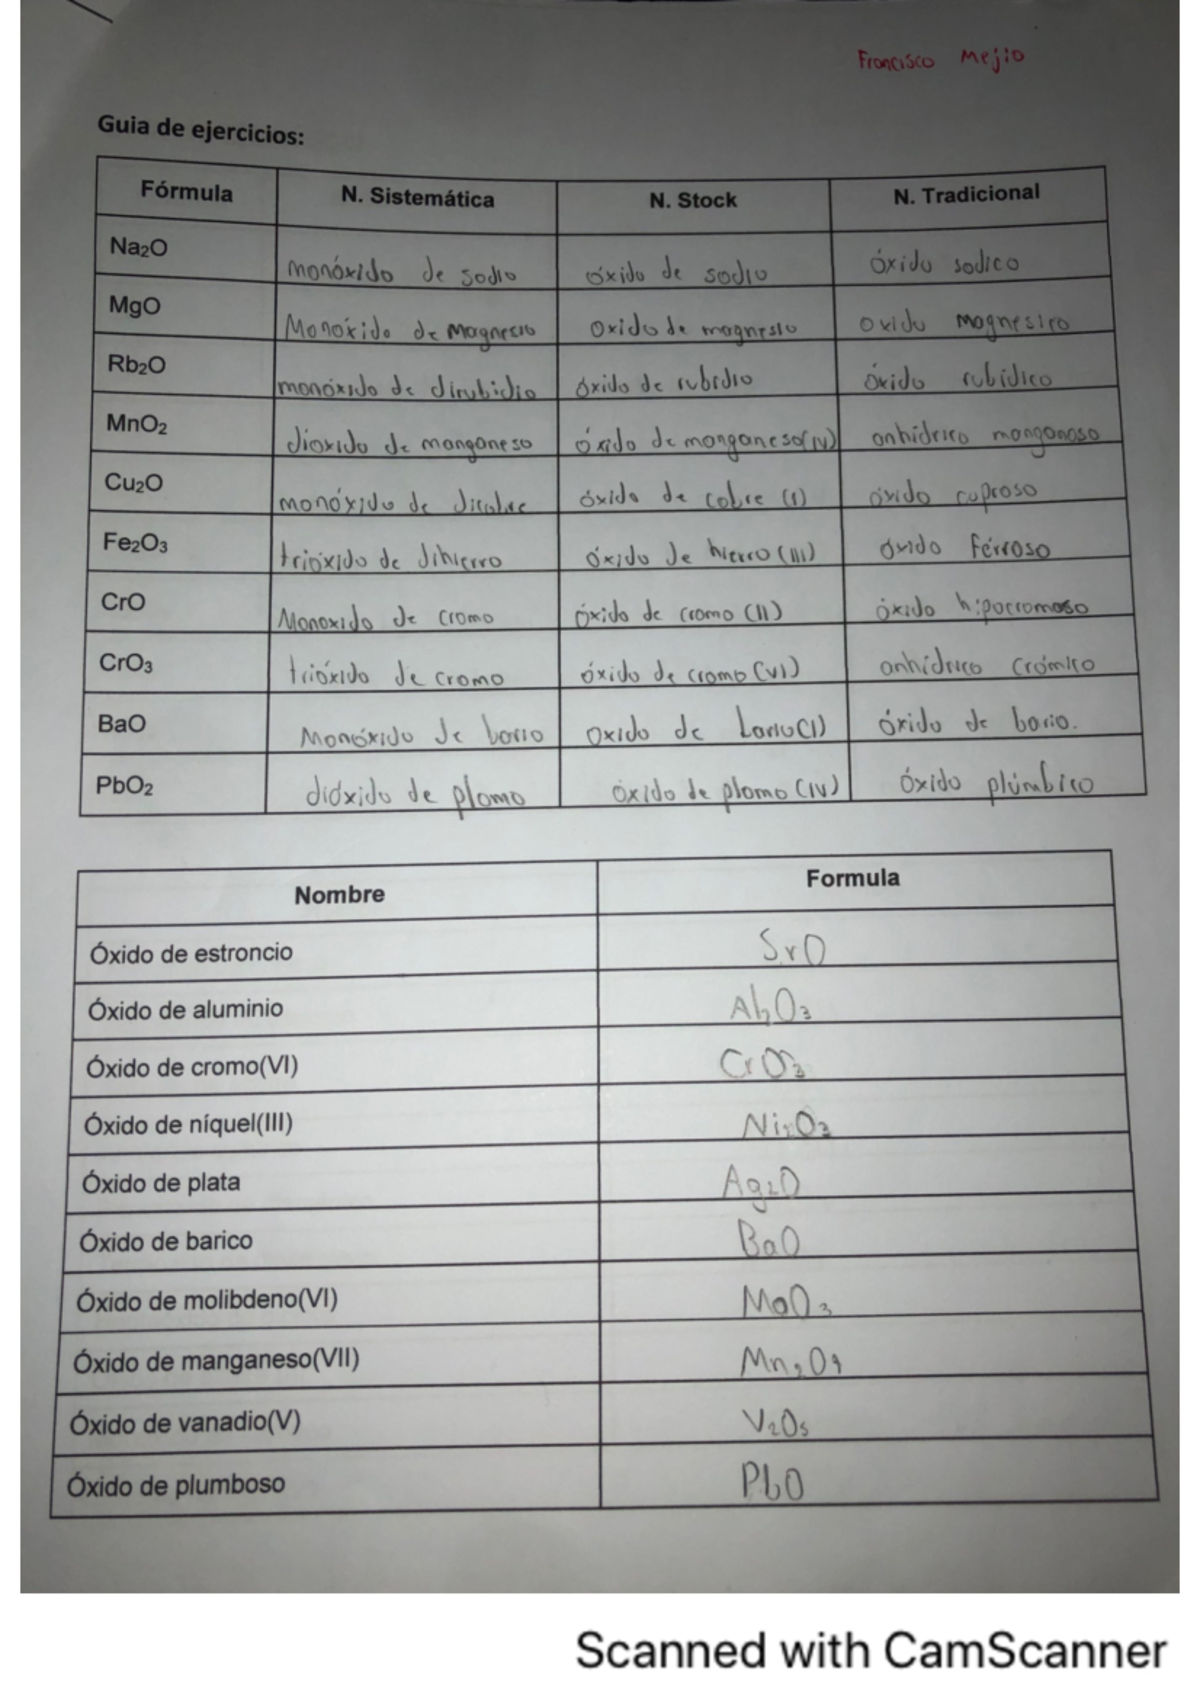 Francisco Mejio
Guia de ejercicios:
Fórmula N. Sistemática N. Stock N. Tradicional
Na₂O monóxido de sodio óxido de sodio óxido sodico
MgO Monóxido de Magnesio Oxido de magnesio oxido magnesico
Rb₂O monóxido de dirubidio óxido de rubidio óxido rubídico
MnO₂ dioxido de manganeso óxido de manganeso(IV) anhídrico manganoso
Cu₂O monóxido de dicobre óxido de cobre (I) óxido cuproso
Fe₂O₃ trióxido de dihierro óxido de hierro (III) óxido férroso
CrO Monoxido de cromo óxido de cromo (II) óxido hipocromoso
CrO₃ trióxido de cromo óxido de cromo (VI) anhídrico crómico
BaO Monóxido de bario oxido de bario(I) óxido de bario.
PbO₂ dióxido de plomo óxido de plomo (IV) óxido plúmbico
Nombre Formula
Óxido de estroncio SrO
Óxido de aluminio Al₂O₃
Óxido de cromo(VI) CrO₃
Óxido de níquel(III) Ni₂O₃
Óxido de plata Ag₂O
Óxido de barico BaO
Óxido de molibdeno(VI) MoO₃
Óxido de manganeso(VII) Mn₂O₇
Óxido de vanadio(V) V₂O₅
Óxido de plumboso PbO
Scanned with CamScanner